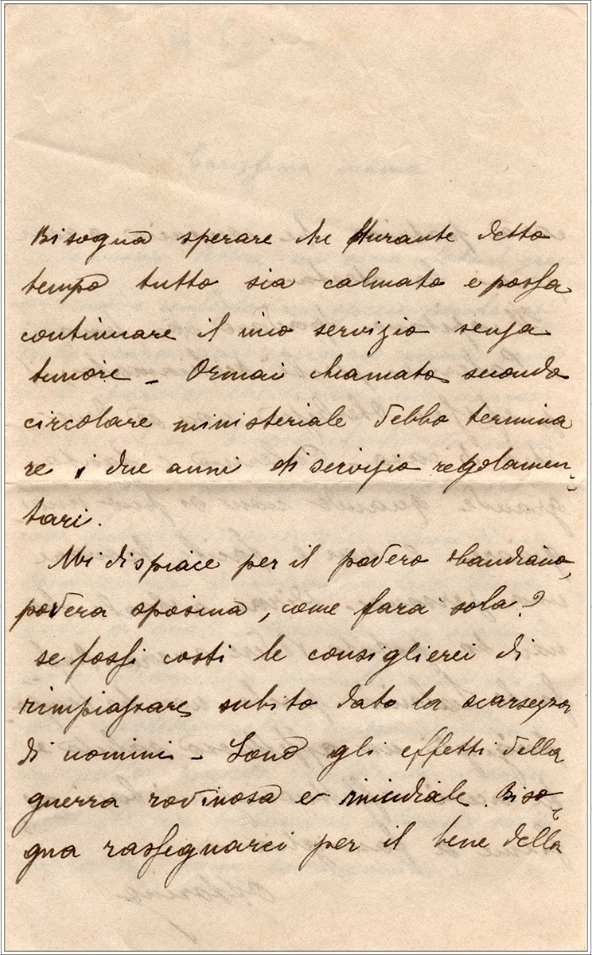 Bisogna sperare che durante detto
tempo tutto sia calmato e possa
continuare il mio servizio senza
timore - Ormai chiamato secondo
circolare ministeriale debbo termina
re i due anni di servizio regolamen-
tari.
Mi dispiace per il povero
povera sposina, come farà sola?
se fossi costì le consiglierei di
rimpiazzare subito dato la scarsezza
di uomini - Sono gli effetti della
guerra rovinosa e micidiale. Biso-
gna rassegnarci per il bene della